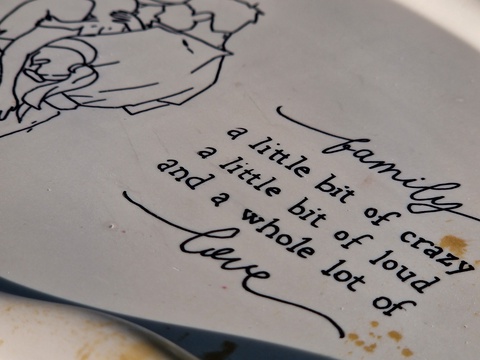 family
a little bit of crazy
a little bit of loud
and a whole lot of
love